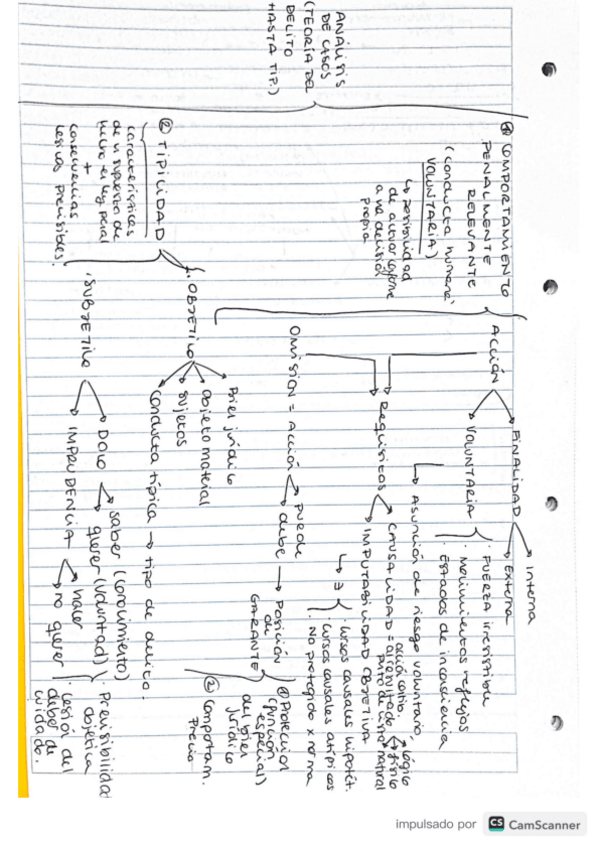 ANÁLISIS
DE CASOS
(TEORÍA DEL
DELITO
HASTA TIP.)
① COMPORTAMIENTO
PENALMENTE
RELEVANTE
(conducta humana
VOLUNTARIA)
↳ posibilidad
de actuar conforme
a una decisión
propia
ACCIÓN
FINALIDAD
Interna
Externa
VOLUNTARIA
· FUERZA irresistible
· Movimientos reflejos
· Estados de inconsciencia
↳ Asunción de riesgo voluntario
Requisitos
CAUSALIDAD =
lógico
físico
natural
IMPUTABILIDAD OBJETIVA
↳ ∃
· Cursos causales hipotét.
· Cursos causales atípicos
· No protegido x norma
OMISIÓN = ACCIÓN
puede
debe → POSICIÓN
DE
GARANTE
① Protección
(función
especial)
del bien
jurídico
② Comportam.
Previo
② TIPICIDAD
características
de un supuesto de
hecho en ley penal
+
consecuencias
lesivas previsibles.
1. OBJETIVO
Bien jurídico
Objeto material
Sujetos
Conducta típica → tipo de delito.
· SUBJETIVO
DOLO
saber (conocimiento)
querer (voluntad)
IMPRUDENCIA
hacer
no querer
· Previsibilidad
objetiva
· Lesión del
deber de
cuidado.
impulsado por CS CamScanner